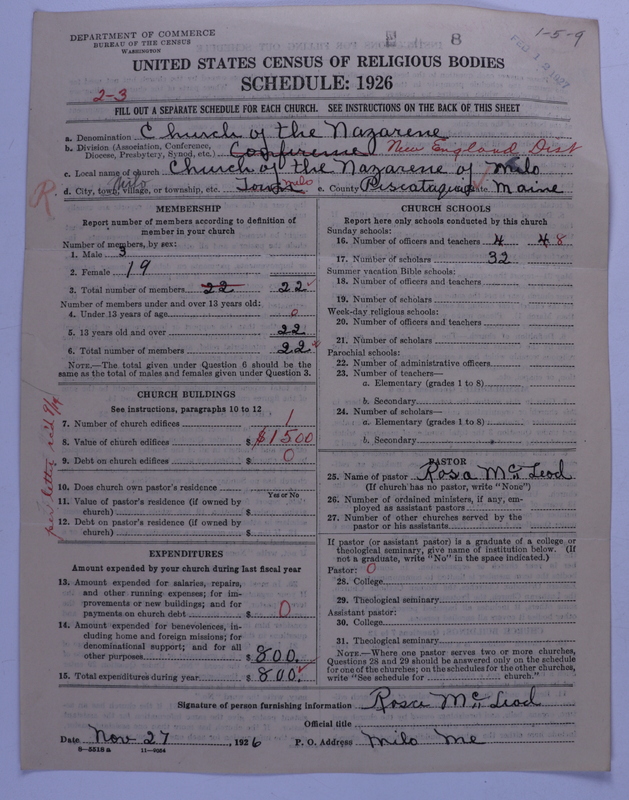 DEPARTMENT OF COMMERCE
BUREAU OF THE CENSUS
WASHINGTON
8
1-5-9
UNITED STATES CENSUS OF RELIGIOUS BODIES
SCHEDULE: 1926
2-3
FILL OUT A SEPARATE SCHEDULE FOR EACH CHURCH. SEE INSTRUCTIONS ON THE BACK OF THIS SHEET
a. Denomination Church of the Nazarene
b. Division (Association, Conference, Diocese, Presbytery, Synod, etc.) Conference New England Dist
c. Local name of church Church of the Nazarene of Milo
d. City, town, village, or township, etc. Milo Town Milo e. County Piscataquis State Maine
R.
MEMBERSHIP
Report number of members according to definition of
member in your church
Number of members, by sex:
1. Male 3
2. Female 19
3. Total number of members 22 22
Number of members under and over 13 years old:
4. Under 13 years of age 0
5. 13 years old and over 22
6. Total number of members 22
NOTE.—The total given under Question 6 should be the
same as the total of males and females given under Question 3.
CHURCH BUILDINGS
See instructions, paragraphs 10 to 12
7. Number of church edifices 1
8. Value of church edifices $ $1500
9. Debt on church edifices $ 0
10. Does church own pastor's residence?
Yes or No
11. Value of pastor's residence (if owned by
church) $
12. Debt on pastor's residence (if owned by
church) $
per letter rec'd
EXPENDITURES
Amount expended by your church during last fiscal year
13. Amount expended for salaries, repairs,
and other running expenses; for im-
provements or new buildings; and for
payments on church debt $ 0
14. Amount expended for benevolences, in-
cluding home and foreign missions; for
denominational support; and for all
other purposes $ 800.
15. Total expenditures during year $ 800.
CHURCH SCHOOLS
Report here only schools conducted by this church
Sunday schools:
16. Number of officers and teachers 4 4 8
17. Number of scholars 32
Summer vacation Bible schools:
18. Number of officers and teachers
19. Number of scholars
Week-day religious schools:
20. Number of officers and teachers
21. Number of scholars
Parochial schools:
22. Number of administrative officers
23. Number of teachers—
a. Elementary (grades 1 to 8)
b. Secondary
24. Number of scholars—
a. Elementary (grades 1 to 8)
b. Secondary
PASTOR
25. Name of pastor Rosa McLeod
(If church has no pastor, write "None")
26. Number of ordained ministers, if any, em-
ployed as assistant pastors
27. Number of other churches served by the
pastor or his assistants
If pastor (or assistant pastor) is a graduate of a college or
theological seminary, give name of institution below. (If
not a graduate, write "No" in the space indicated.)
Pastor: 0
28. College
29. Theological seminary
Assistant pastor:
30. College
31. Theological seminary
NOTE.—Where one pastor serves two or more churches,
Questions 28 and 29 should be answered only on the schedule
for one of the churches; on the schedules for the other churches,
write "See schedule for church."
Signature of person furnishing information Rosa McLeod
Official title
Date Nov 27, 1926 P. O. Address Milo Me
8-5518 a 11-9054